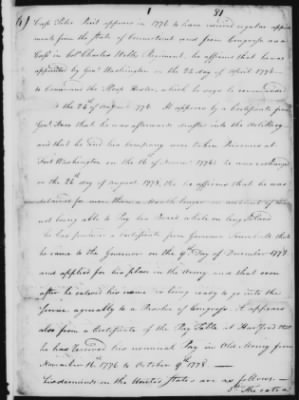 1
51
(6)
Capt Peter Perit appears in 1776 to have received regular appoint
ments from the State of Connecticut and from Congress as a
Capt in Col Charles Webbs Regiment. he affirms that he was
appointed by Genl Washington on the 24 day of April 1776
to command the Sloop Hester, which he says he commanded
to the 24th of August 1776 It appears by a Certificate from
Genl that he was afterwards into the Artillery
and that he and his Company were taken Prisoners at
Fort Washington on the 16 of Novemr 1776. he was exchanged
on the 26th day of August 1778, tho he affirms that he was
detained for more than a Month longer on account of his
not being able to Pay his Board while on Long Island
he has produced a certificate from Governor Trumbull that
he came to the Governor on the 9th Day of December 1778
and applied for his place in the Army and that soon
after he entered his name as being ready to go into the
Service agreeably to a Resolve of Congress. It appears
also from a Certificate of the Pay Table at Hartford that
he has Received his nominal Pay in Old Money from
November 16th 1776 to October 9th 1778
his demands on the United States are as follows